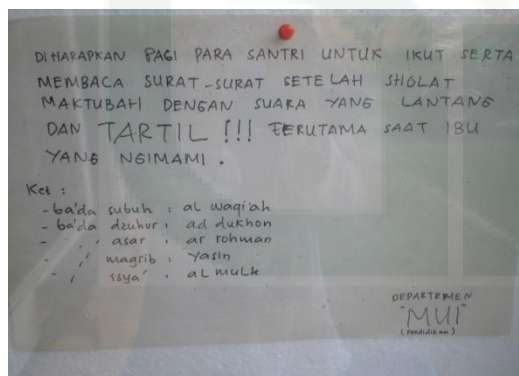 DIHARAPKAN BAGI PARA SANTRI UNTUK IKUT SERTA
MEMBACA SURAT-SURAT SETELAH SHOLAT
MAKTUBAH DENGAN SUARA YANG LANTANG
DAN TARTIL !!! TERUTAMA SAAT IBU
YANG NGIMAMI.
Ket :
- ba'da subuh : al waqi'ah
- ba'da dzuhur : ad dukhon
- " asar : ar rohman
- " magrib : yasin
- " isya' : al mulk
DEPARTEMEN
"MUI"
(pendidikan)